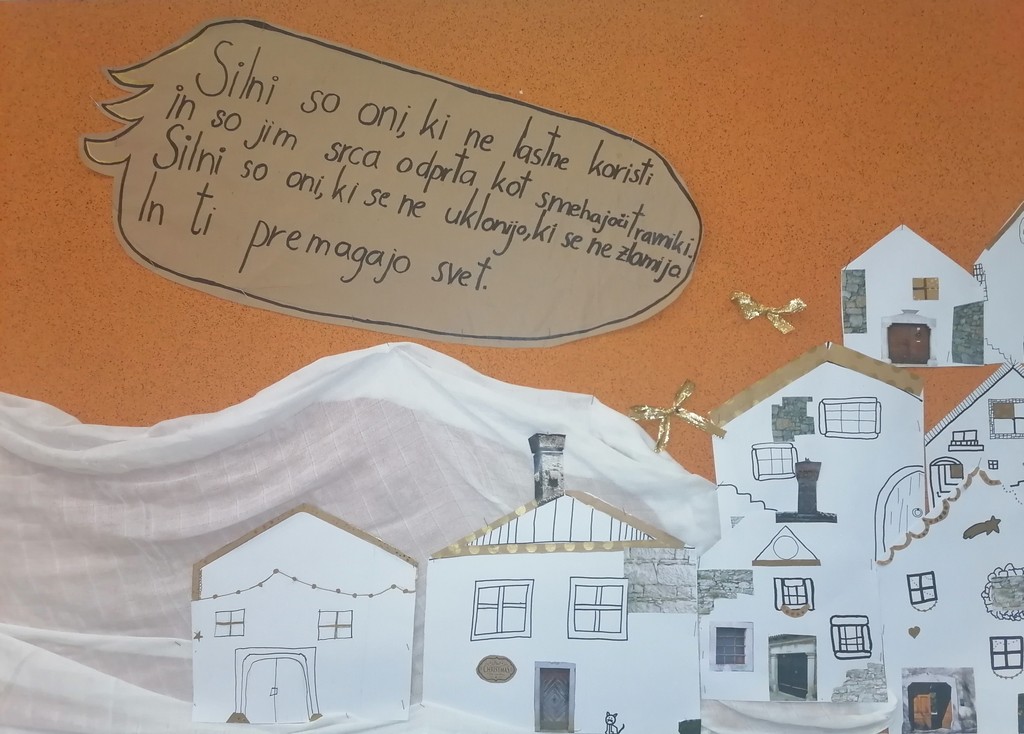 Silni so oni, ki ne lastne koristi
in so jim srca odprta, kot smehajoči travniki.
Silni so oni, ki se ne uklonijo, ki se ne zlomijo
In ti premagajo svet.
CHRISTMAS